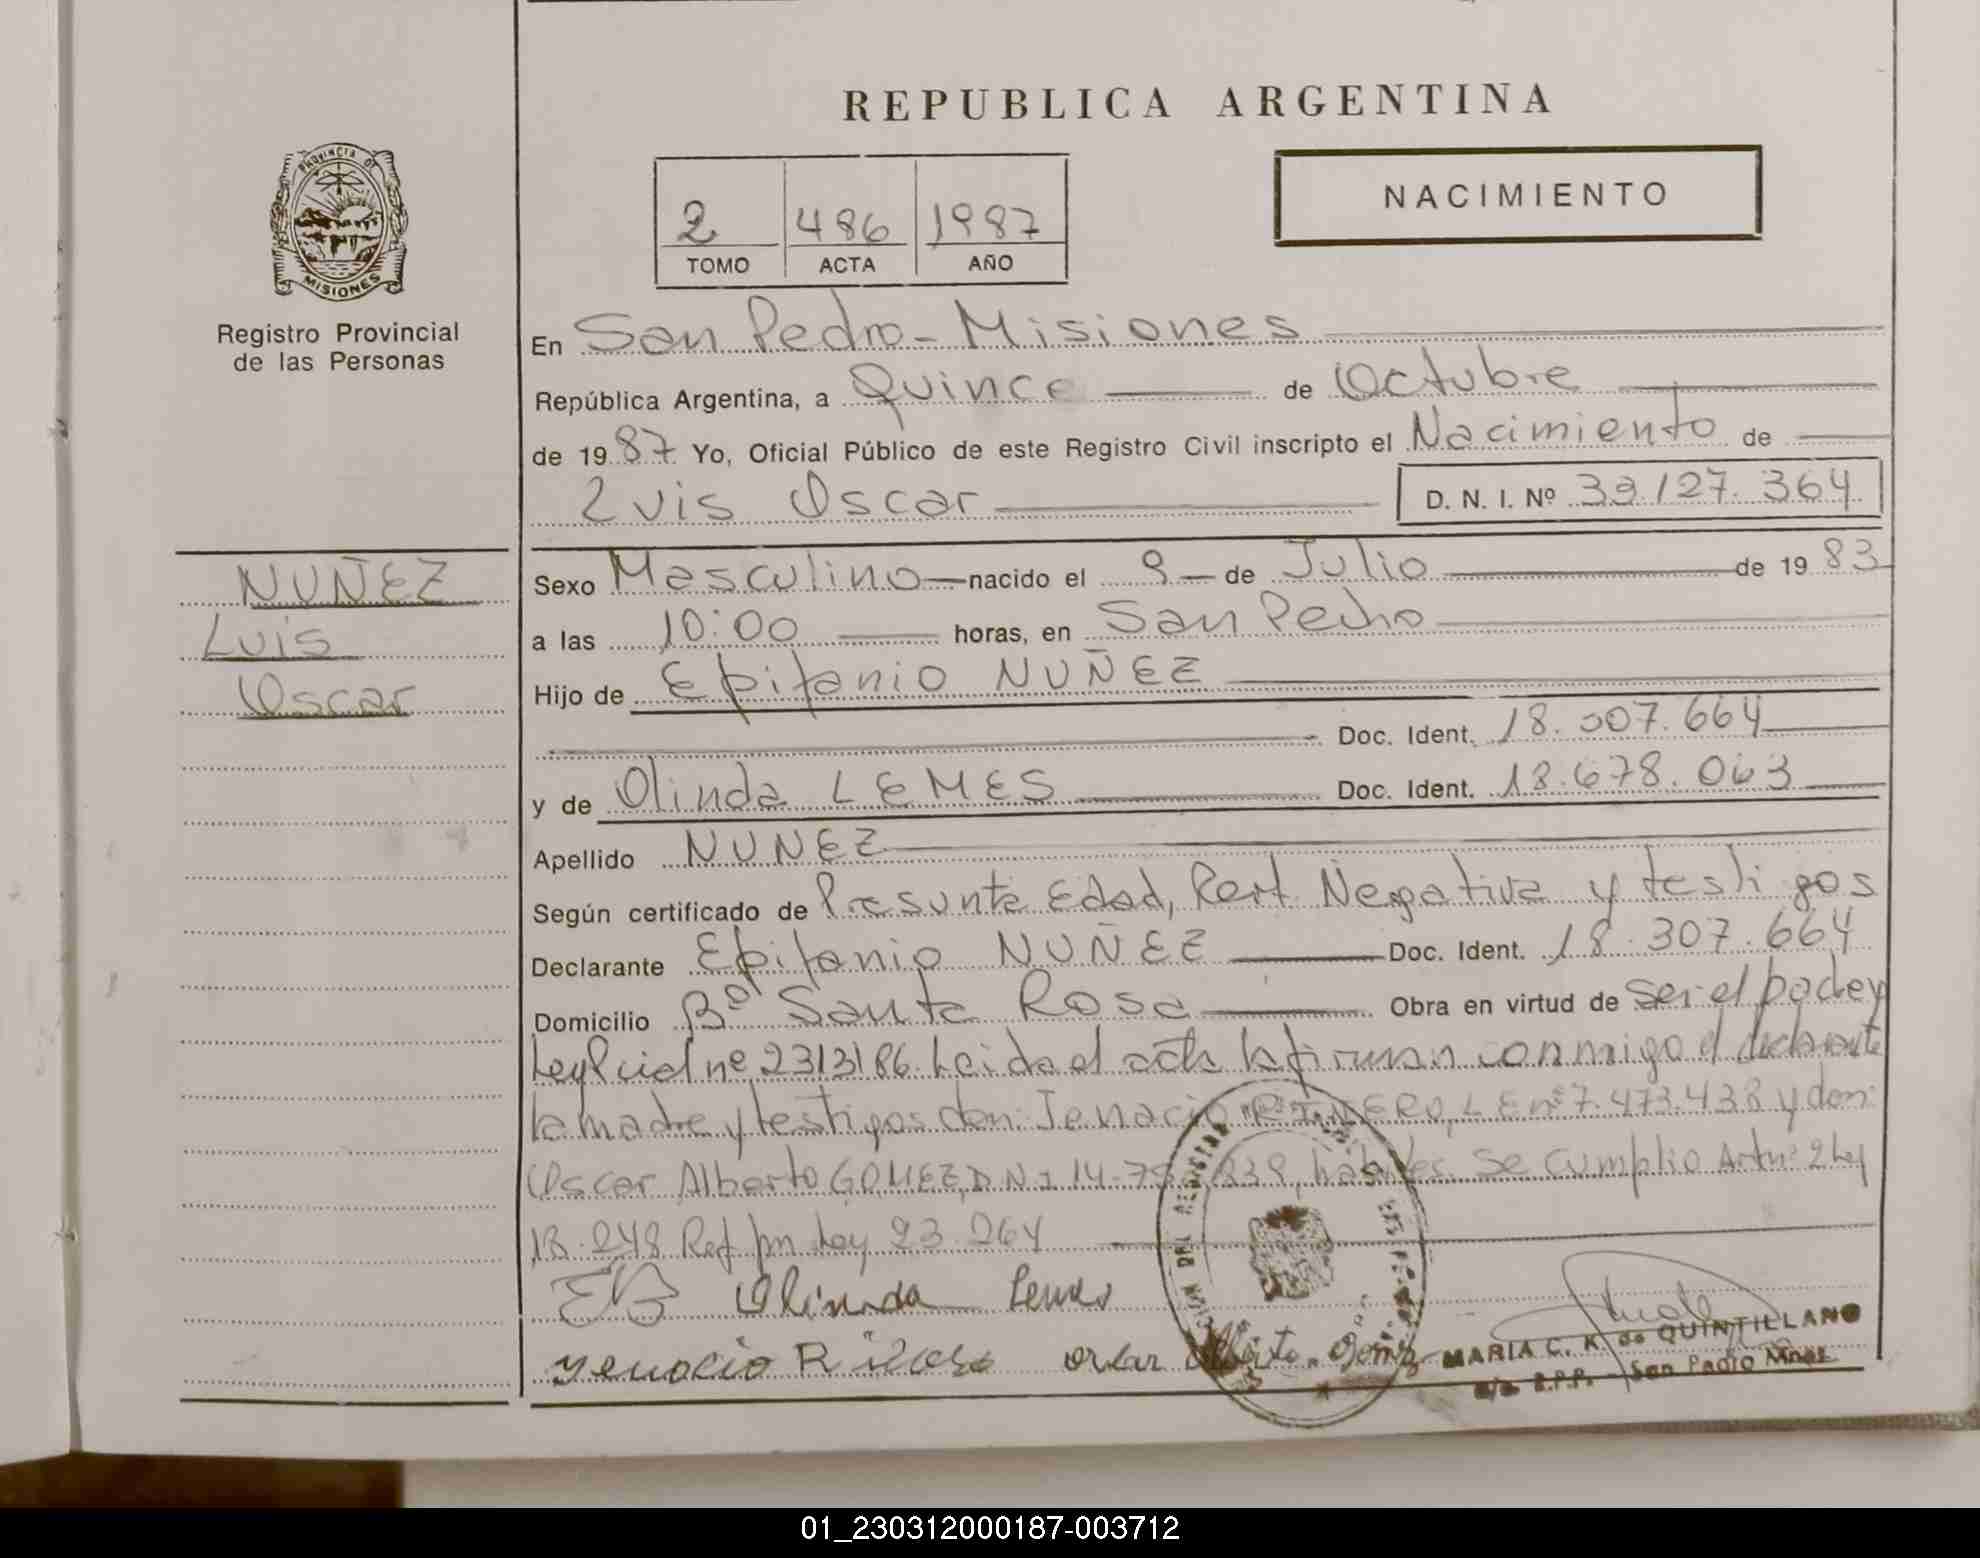 REPUBLICA ARGENTINA
NACIMIENTO
2 486 1987
TOMO ACTA AÑO
PROVINCIA DE
MISIONES
Registro Provincial
de las Personas
En San Pedro - Misiones
República Argentina, a Quince de Octubre
de 1987 Yo, Oficial Público de este Registro Civil inscripto el Nacimiento de
Luis Oscar D. N. I. Nº 33.127.364
NUÑEZ
Luis
Oscar
Sexo Masculino nacido el 9 de Julio de 1983
a las 10:00 horas, en San Pedro
Hijo de Epifanio NUÑEZ
Doc. Ident. 18.007.664
y de Olinda LEMES Doc. Ident. 18.678.063
Apellido NUNEZ
Según certificado de Presunta Edad, Negativa y testigos
Declarante Epifanio NUÑEZ Doc. Ident. 18.307.664
Domicilio Bº Santa Rosa Obra en virtud de ser el padre y
Ley nº 2313/86. Leida el acta la firman conmigo el declarante
la madre y testigos don: LE nº 7.473.438 y don:
Oscar Alberto GOMEZ, D.N.I 14. 839, hábiles. Se cumplio Art nº 2 Ley
18.248 Ref por Ley 23.264
Olinda Lemes
oscar Alberto Gomez
MARIA C. K. de QUINTILLANO
R.P.P. - San Pedro Mnes.
01_230312000187-003712